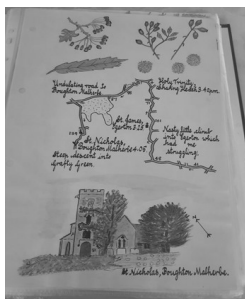 Undulating road to
Boughton Malherbe.
Holy Trinity,
St. James,
Egerton 3.28
St. Nicholas,
Boughton Malherbe 4.08
Steep descent into
Grafty Green.
Nasty little climb
into Egerton which
had me
struggling.
St. Nicholas, Boughton Malherbe.